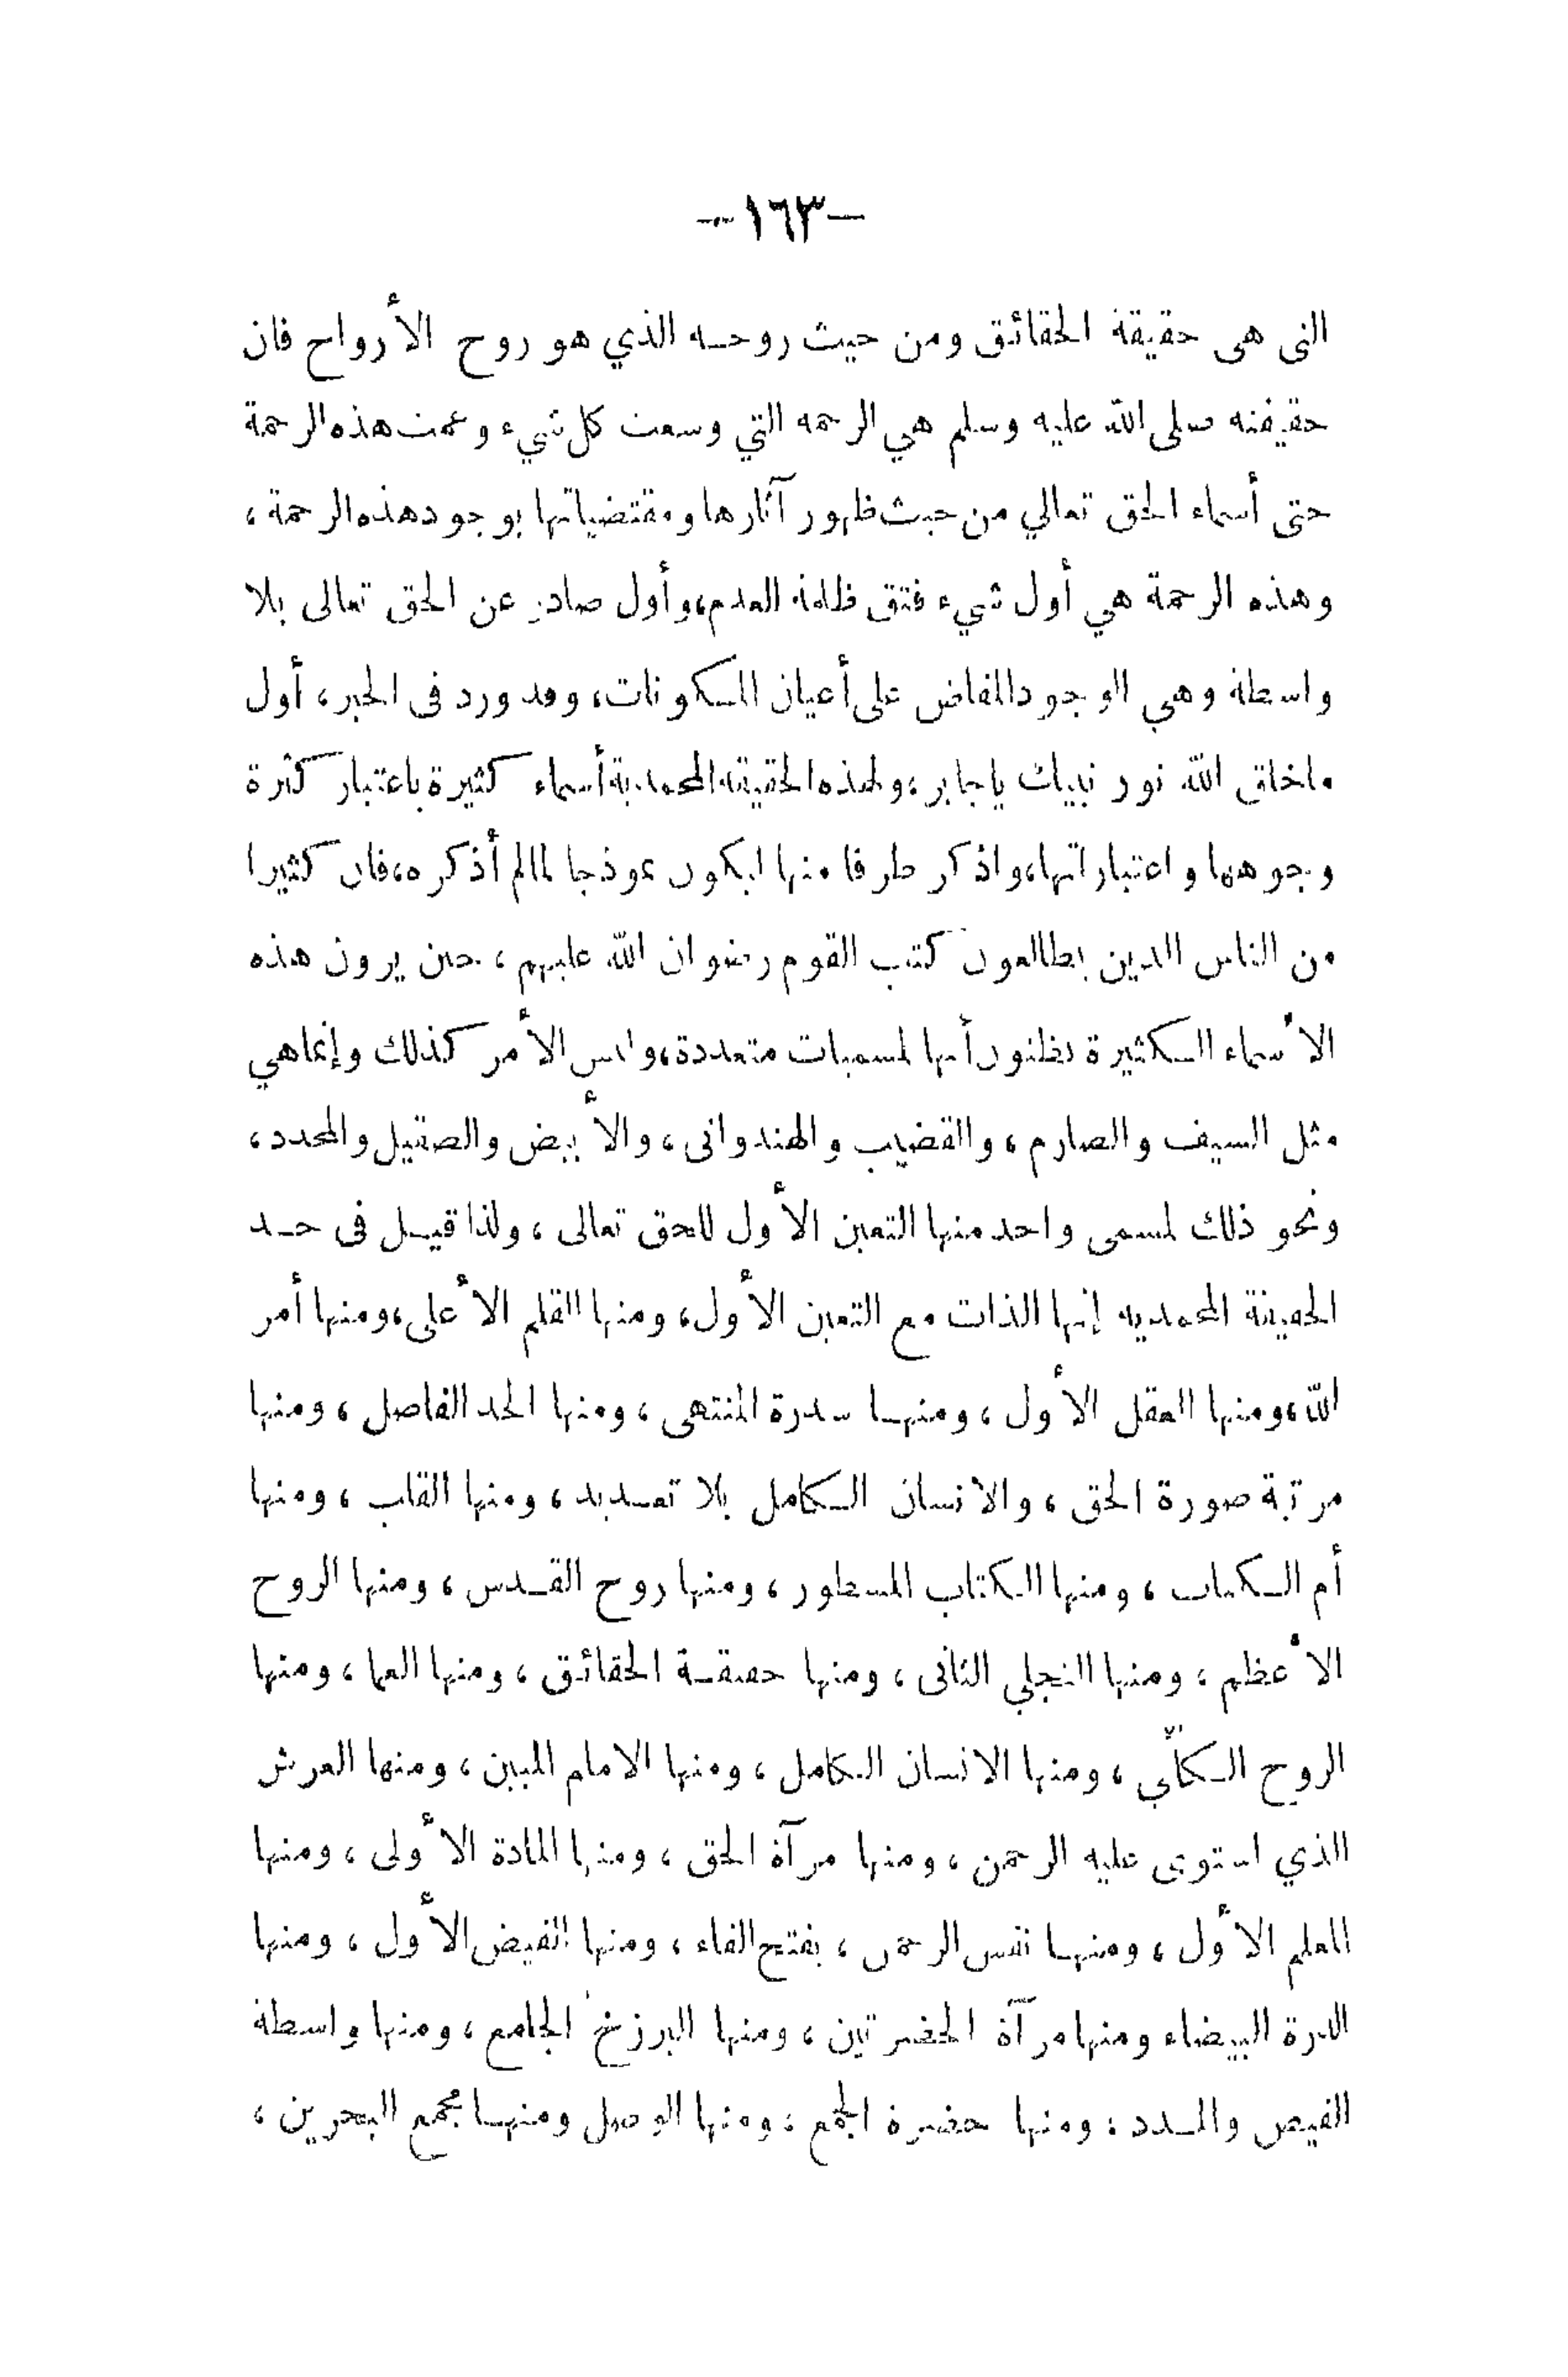 -١٦٣-
التى هى حقيقة الحقائق ومن حيث روحـه الذي هو روح الأرواح فان
حقيقته صلى الله عليه وسلم هي الرحمه التي وسعت كل شيء وعمت هذه الرحمة
حتى أسماء الحق تعالي من حيث ظهور آثارها ومقتضياتها بوجود هذه الرحمة ،
وهذه الرحمة هي أول شيء فتق ظلمة العدم، وأول صادر عن الحق تعالى بلا
واسطة وهي الوجود المفاض على أعيان المـكونات، وقد ورد فى الخبر، أول
ماخلق الله نور نبيك ياجابر ، ولهذه الحقيقة المحمدية أسماء كثيرة باعتبار كثرة
وجوهها واعتباراتها، واذكر طرفا منها ليكون نموذجا لمالم أذكره، فان كثيرا
من الناس الذين يطالعون كتب القوم رضوان الله عليهم ، حين يرون هذه
الأسماء الـكثيرة يظنون أنها لمسميات متعددة، وليس الأمر كذلك وإنماهي
مثل السيف والصارم ، والقضيب والهندوانى ، والأبيض والصقيل والمحدد ،
ونحو ذلك لمسمى واحد منها التعين الأول للحق تعالى ، ولذا قيـل فى حـد
الحقيقة المحمديه إنها الذات مع التعين الأول، ومنها القلم الأعلى، ومنها أمر
الله، ومنها العقل الأول ، ومنهـا سدرة المنتهى ، ومنها الحد الفاصل ، ومنها
مرتبة صورة الحق ، والانسان الـكامل بلا تعـديد ، ومنها القلب ، ومنها
أم الـكتاب ، ومنها الكتاب المسطور ، ومنها روح القـدس ، ومنها الروح
الأعظم ، ومنها التجلي الثانى ، ومنها حقيقـة الحقائق ، ومنها العما ، ومنها
الروح الـكلّي ، ومنها الانسان الـكامل ، ومنها الامام المبين ، ومنها العرش
الذي استوى عليه الرحمن ، ومنها مرآة الحق ، ومنها المادة الأولى ، ومنها
المعلم الأول ، ومنهـا نفس الرحمن ، بفتح الفاء ، ومنها الفيض الأول ، ومنها
الدرة البيضاء ومنها مرآة الحضرتين ، ومنها البرزخ الجامع ، ومنها واسطة
الفيض والمـدد ، ومنها حضرة الجمع ، ومنها الوصل ومنهـا مجمع البحرين ،